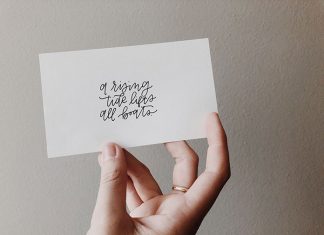 a rising
tide lifts
all boats